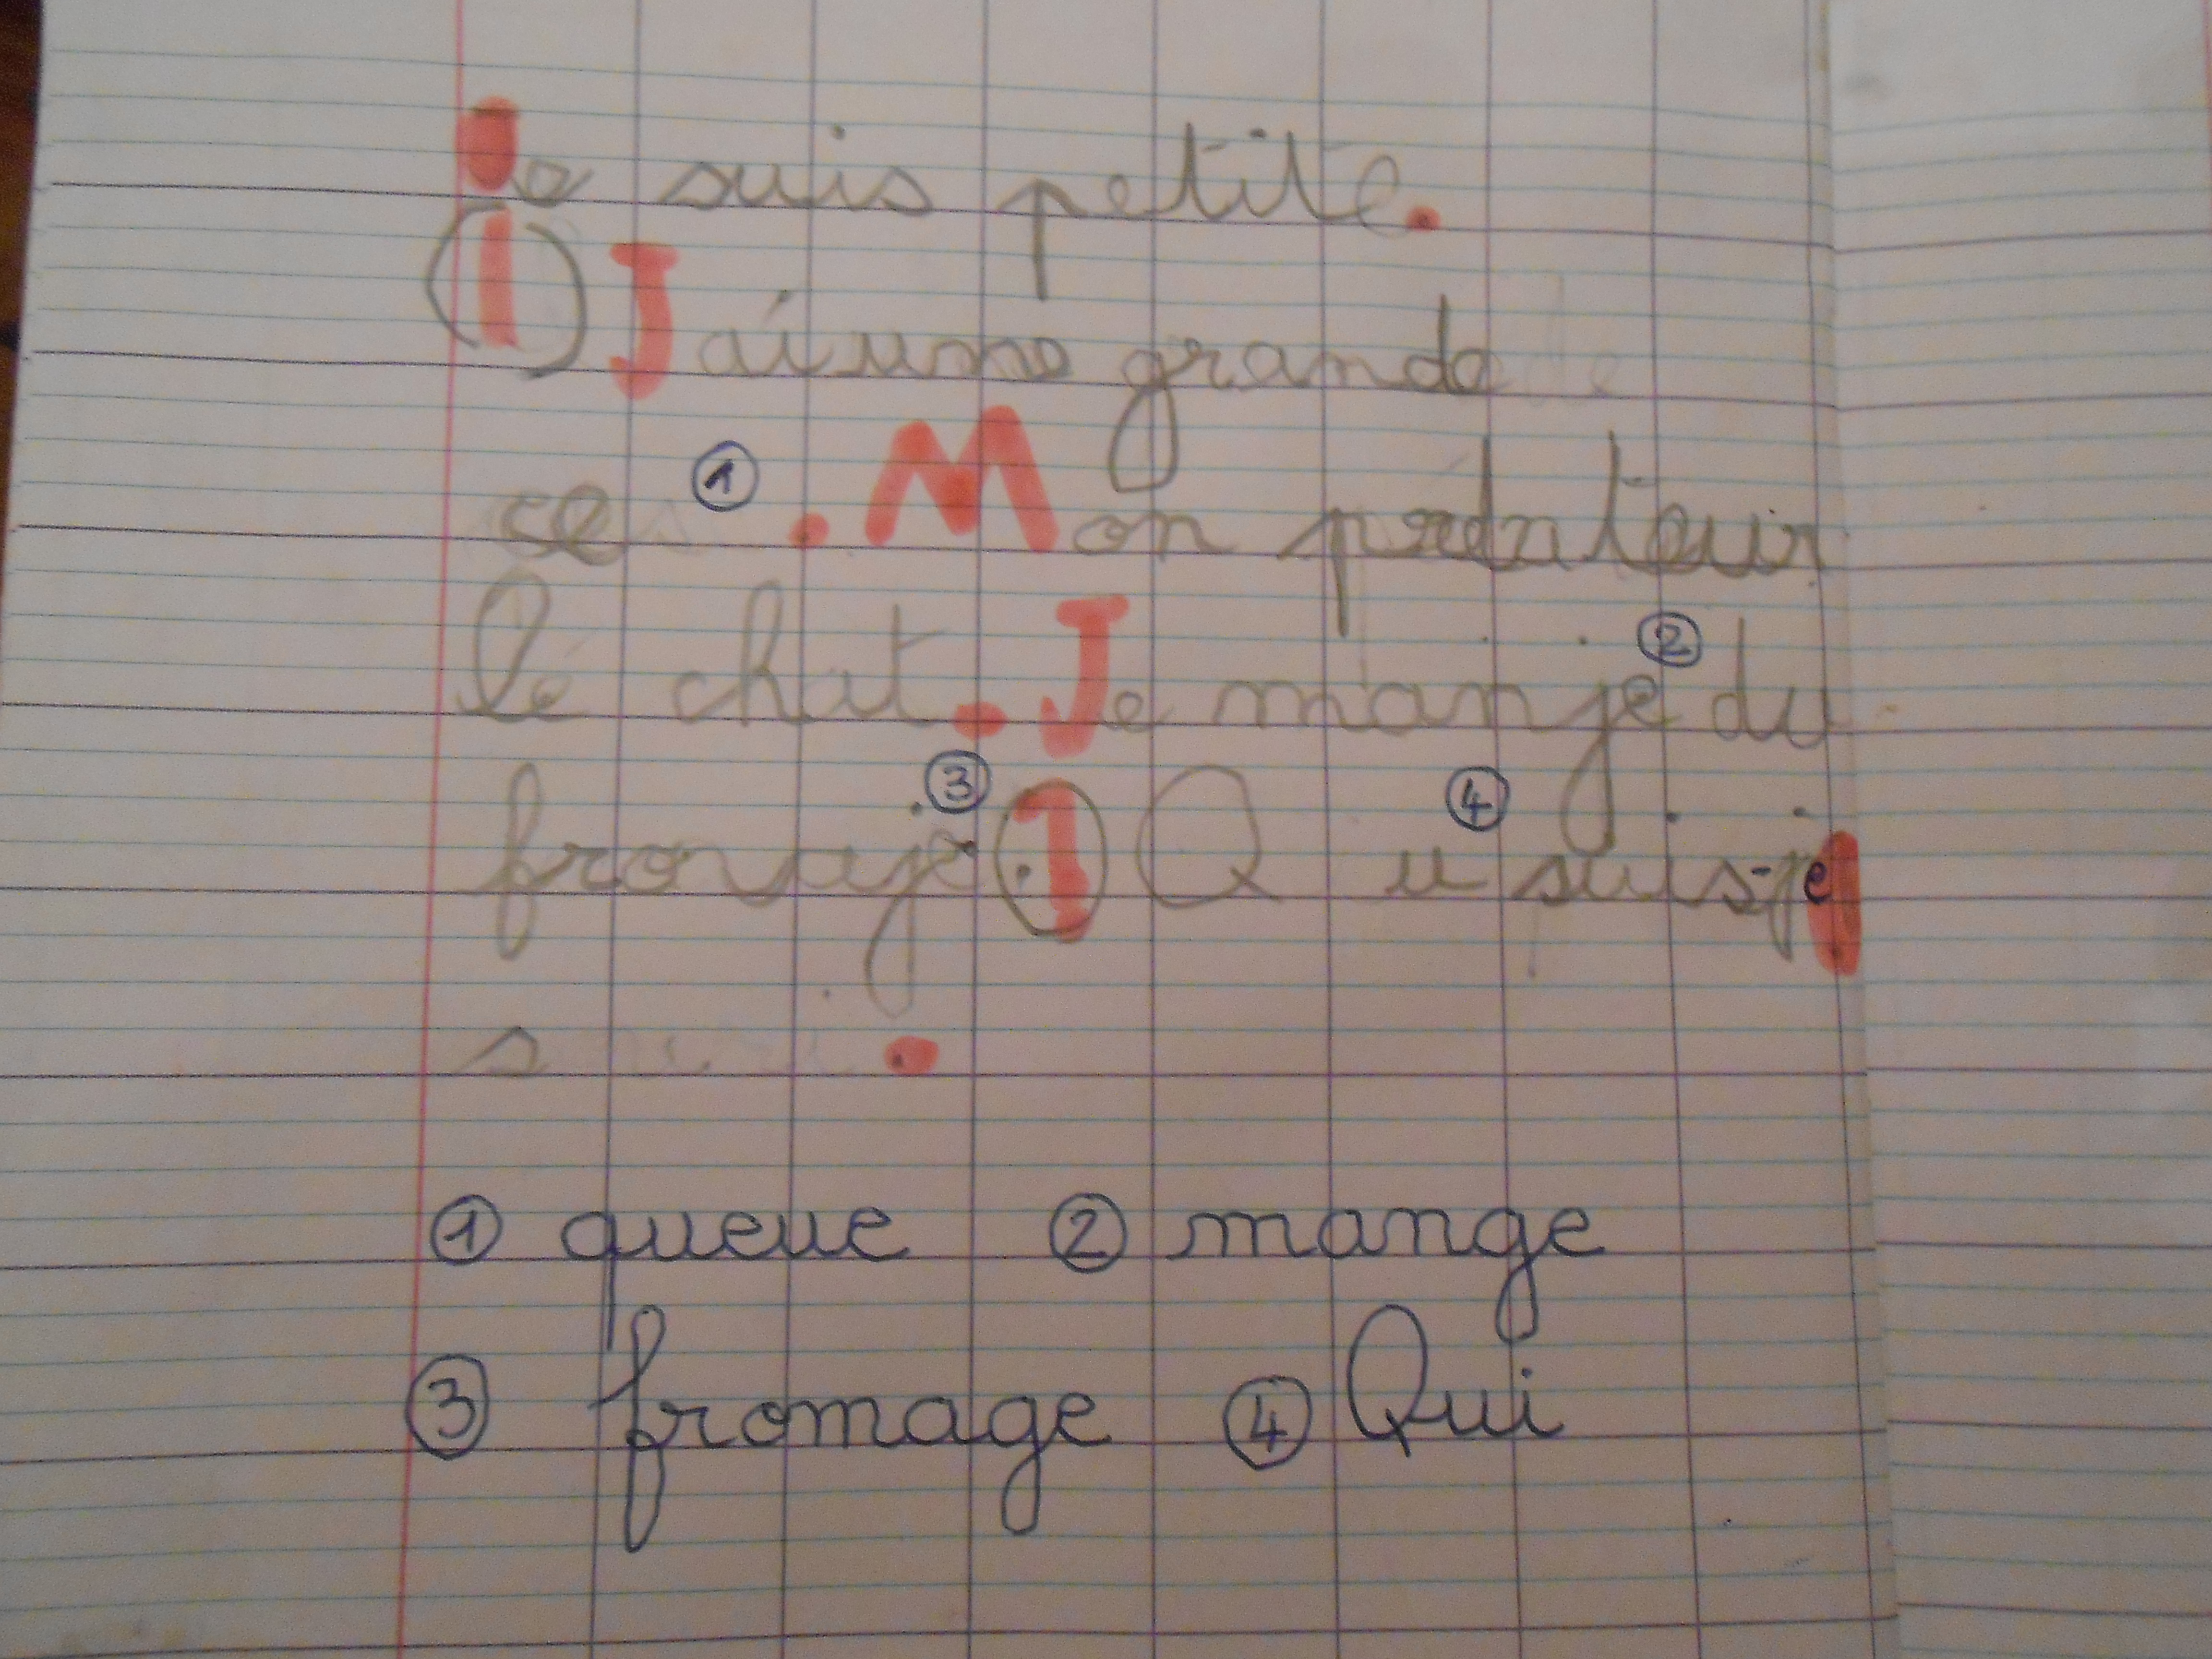 Je suis petite.
J ai une grande
①. Mon prédateur
le chat. Je manje ② du
fromaje ③. Q u ④ suis-je
s .
① queue ② mange
③ fromage ④ Qui